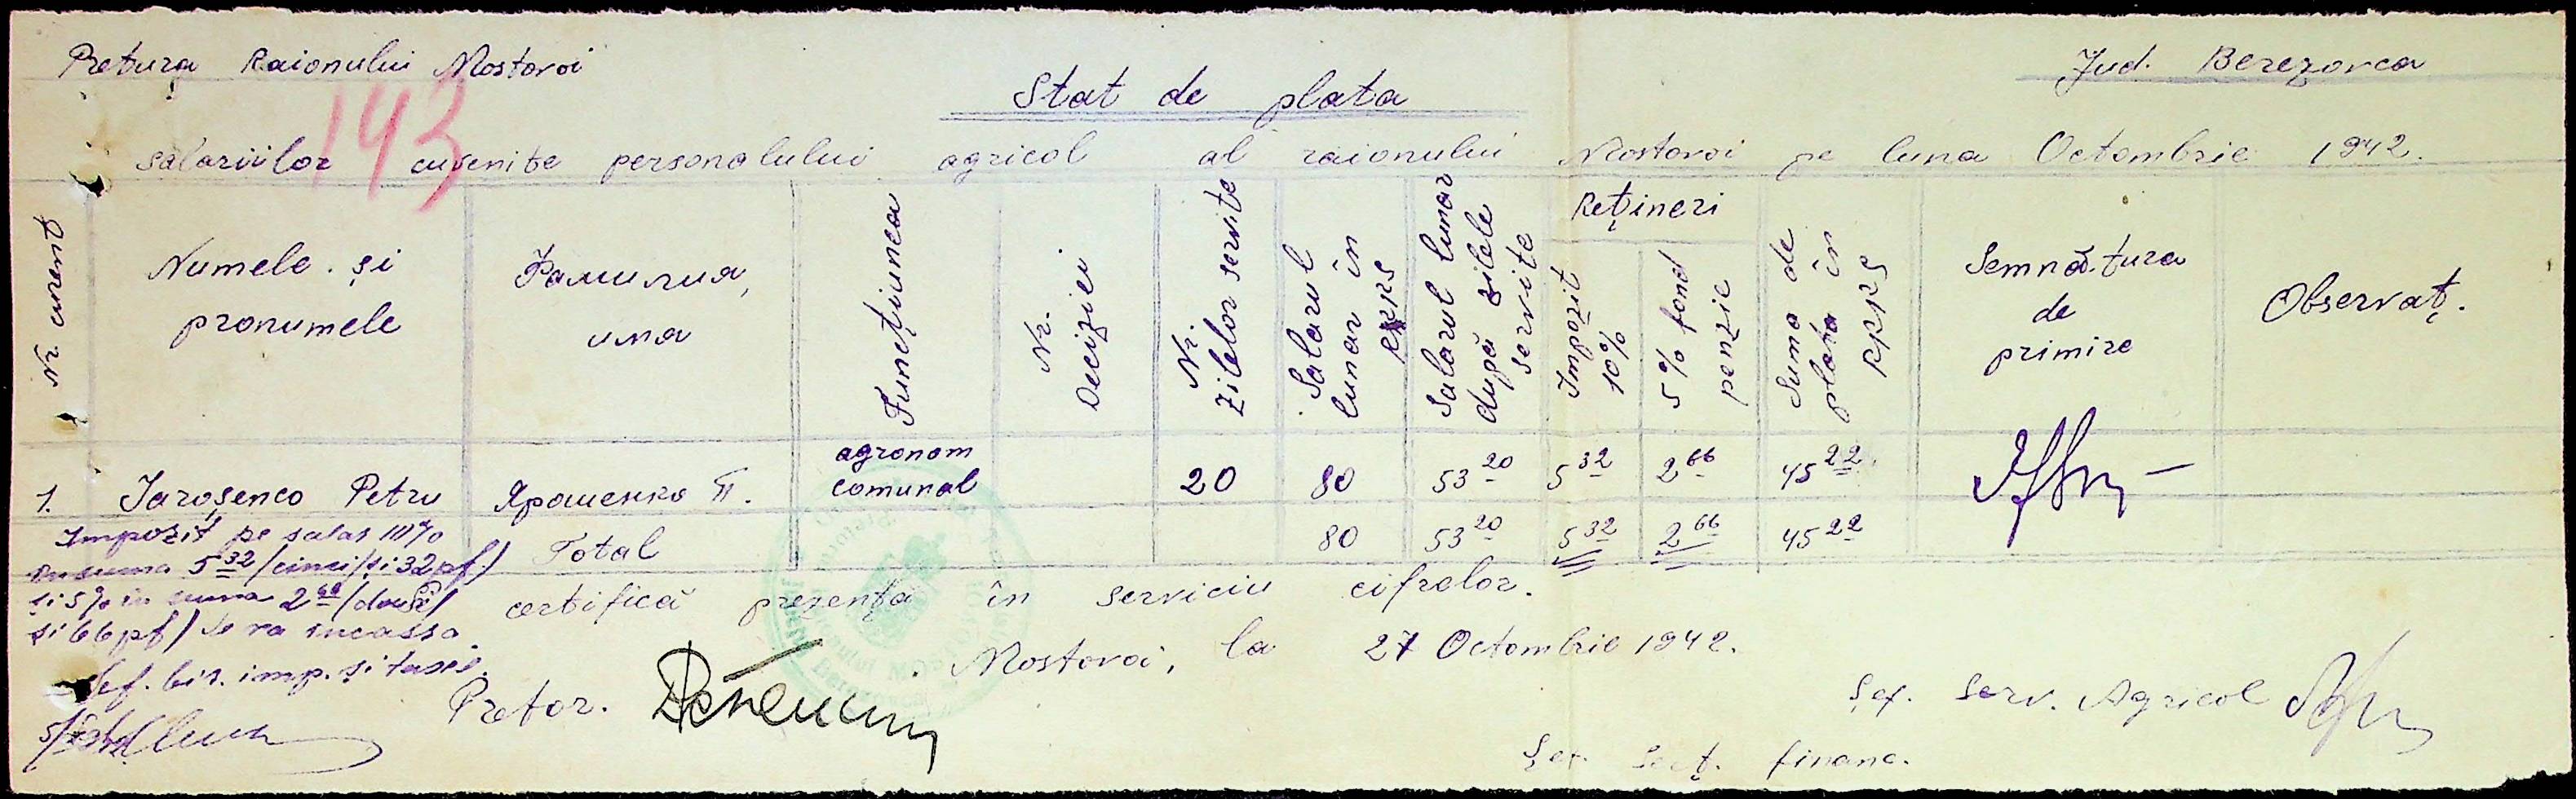 Pretura Raionului Mostovoi
Jud. Berezovca
143
Stat de plata
salariilor cuvenite personalului agricol al raionului Mostovoi pe luna Octombrie 1942.
Nr. curent
Numele și pronumele
Фамилия, имя
Funcțiunea
Nr. Deciziei
Nr. Zilelor servite
Salarul lunar în RKKS
Salarul lunar după zilele servite
Rețineri
Impozit 10%
5% fond penzie
Suma de plata în RKKS
Semnătura de primire
Observaț.
1. Iaroșenco Petru Ярошенко П. agronom comunal 20 80 53 20 5 32 2 66 45 22
Total 80 53 20 5 32 2 66 45 22
Impozit pe salar 10%
în suma 5 32 /cinci/și 32 pf/
și 5% în suma 2 66 /două/
și 66 pf/ se va incassa
Șef. bir. imp. și taxe.
certifică prezența în serviciu cifrelor.
Mostovoi, la 27 Octombrie 1942.
Pretor.
Șef. Serv. Agricol
Șef. Secț. financ.